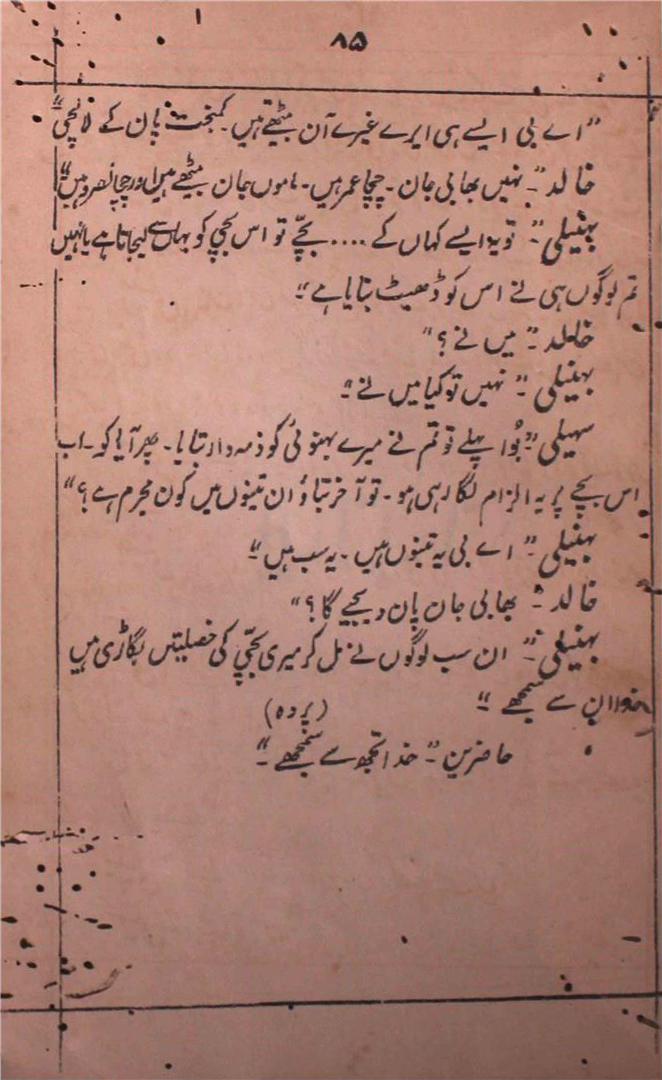 ۸۵
"اے بی ایسے ہی ایرے غیرے آن بیٹھتے ہیں۔ کمبخت پان کے لالچی"
خالد "۔ نہیں بھابی جان۔ چچا عمر ہیں۔ ماموں جان بیٹھے ہیں اور چچا نصرو ہیں"
بہنیلی "۔ تو یہ ایسے کہاں کے .... بچّے تو اس بچی کو یہاں سے لیجاتا ہے یا نہیں
تم لوگوں ہی نے اس کو ڈھیٹ بنایا ہے"۔
خالد "۔ میں نے؟"
بہنیلی "۔ نہیں تو کیا میں نے"۔
سہیلی "۔ بُوا پہلے تو تم نے میرے بہنوئی کو ذمہ دار بتایا۔ پھر آیا کو۔ اب
اس بچے پر یہ الزام لگا رہی ہو۔ تو آخر بتاؤ ان تینوں میں کون مجرم ہے؟"
بہنیلی "۔ اے بی یہ تینوں ہیں۔ یہ سب ہیں"۔
خالد "۔ بھابی جان پان دیجیے گا؟"
بہنیلی "۔ ان سب لوگوں نے مل کر میری بچّی کی خصلیتں بگاڑی ہیں
خدا ان سے سمجھے"۔
(پردہ)
حاضرین "۔ خدا تجھ سے سمجھے"۔